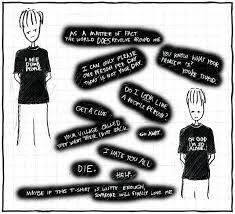 AS A MATTER OF FACT
THE WORLD DOES REVOLVE AROUND ME
I SEE
DUMB
PEOPLE
I CAN ONLY PLEASE
ONE PERSON PER DAY
TODAY IS NOT YOUR DAY
YOU KNOW WHAT YOUR
PROBLEM IS?
YOU'RE STUPID.
DO I LOOK LIKE
A PEOPLE PERSON?
GET A CLUE.
YOUR VILLAGE CALLED
THEY WANT THEIR IDIOT BACK.
GO AWAY.
I HATE YOU ALL
OH GOD
I'M SO
ALONE.
DIE.
HELP.
MAYBE IF THIS T-SHIRT IS WITTY ENOUGH,
SOMEONE WILL FINALLY LOVE ME.